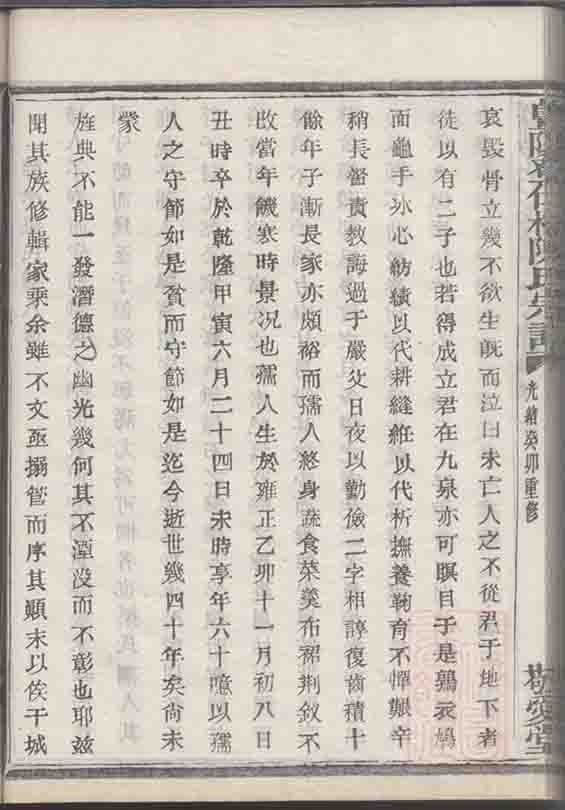 哀毀骨立幾不欲生旣而泣曰未亡人之不從君于地下者
徒以有二子也若得成立君在九泉亦可瞑目于是鶉衣鳩
面龜手冰心紡績以代耕縫紝以代析撫養鞠育不憚艱辛
稍長督責教誨過于嚴父日夜以勤儉二字相諄復齒積十
餘年子漸長家亦頗裕而孺人終身蔬食菜羹布裙荆釵不
改當年饑寒時景况也孺人生於雍正乙卯十一月初八日
丑時卒於乾隆甲寅六月二十四日未時享年六十噫以孺
人之守節如是貧而守節如是迄今逝世幾四十年矣尚未
蒙
旌典不能一發潛德之幽光幾何其不湮没而不彰也耶兹
聞其族修輯家乘余雖不文亟搦管而序其顚末以俟干城
陳氏宗譜
光緒癸卯重修
敬愛堂